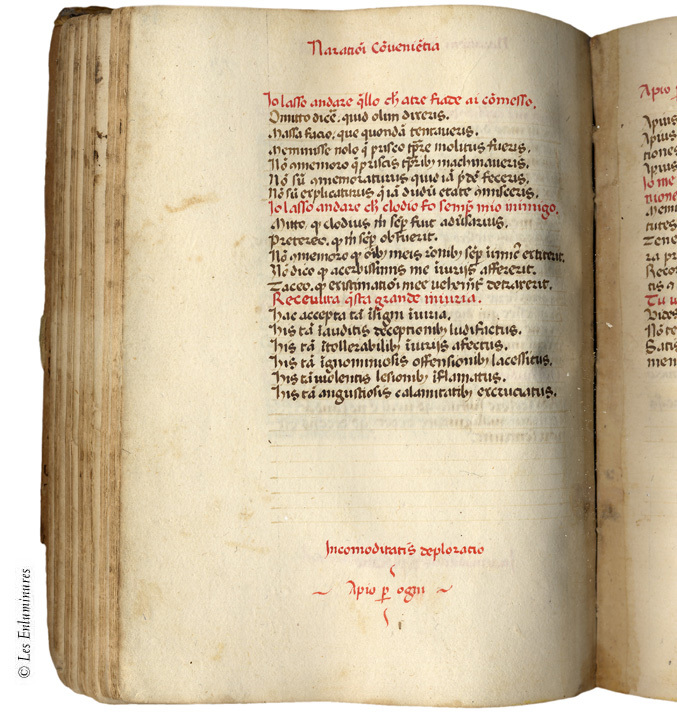 Naratiōi Cōveniētia
Io lasso andare q̄llo ch̄ atre fiade ai cōmesso.
Omitto dicē. quid olim dixeris.
Massa facio. que quondā temtaveris.
Meminisse nolo q̄ priseo tp̄re molitus fueris.
Nō memoro q̄ priscis tp̄rib; machinaveris.
Nō sū memoraturus quid iā p̄dē feceris.
Nō sū explicaturus q̄ iā dudū etate
Io lasso andare ch̄ clodio fo semp̄ mio inimigo.
Mitto. q; clodius m̄ sēp̄ fuit adūsarius.
Pretereo. q; m̄ sēp̄ obfuerit.
Nō memoro q; oīb; meis rōnib; sēp̄ extiterit.
Nō dico q; acerbissimis me iniuriis affererit.
Taceo. q; existimatiōi mee detraxerit.
Recevuta q̄sta grande iniuria.
Hac accepta tā īsigni iniuria.
His tā īauditis deceptionib; ludifactus.
His tā ītollerabilib; īiuriis afectus.
His tā īgnominiosis offensionib; lacessitus.
His tā violentis lesionib; īflamatus.
His tā angustiosis calamitatib; excruciatus.
Incomoditatis deploratio
~ Apio p̄ ogni ~
Apio
Apius
Apius
tiones
Io me
tione
Memi
tutes
Tene
ra pr
Reco
tis
Tu v
Vides
Nō te
Satis
men
© Les Enluminures